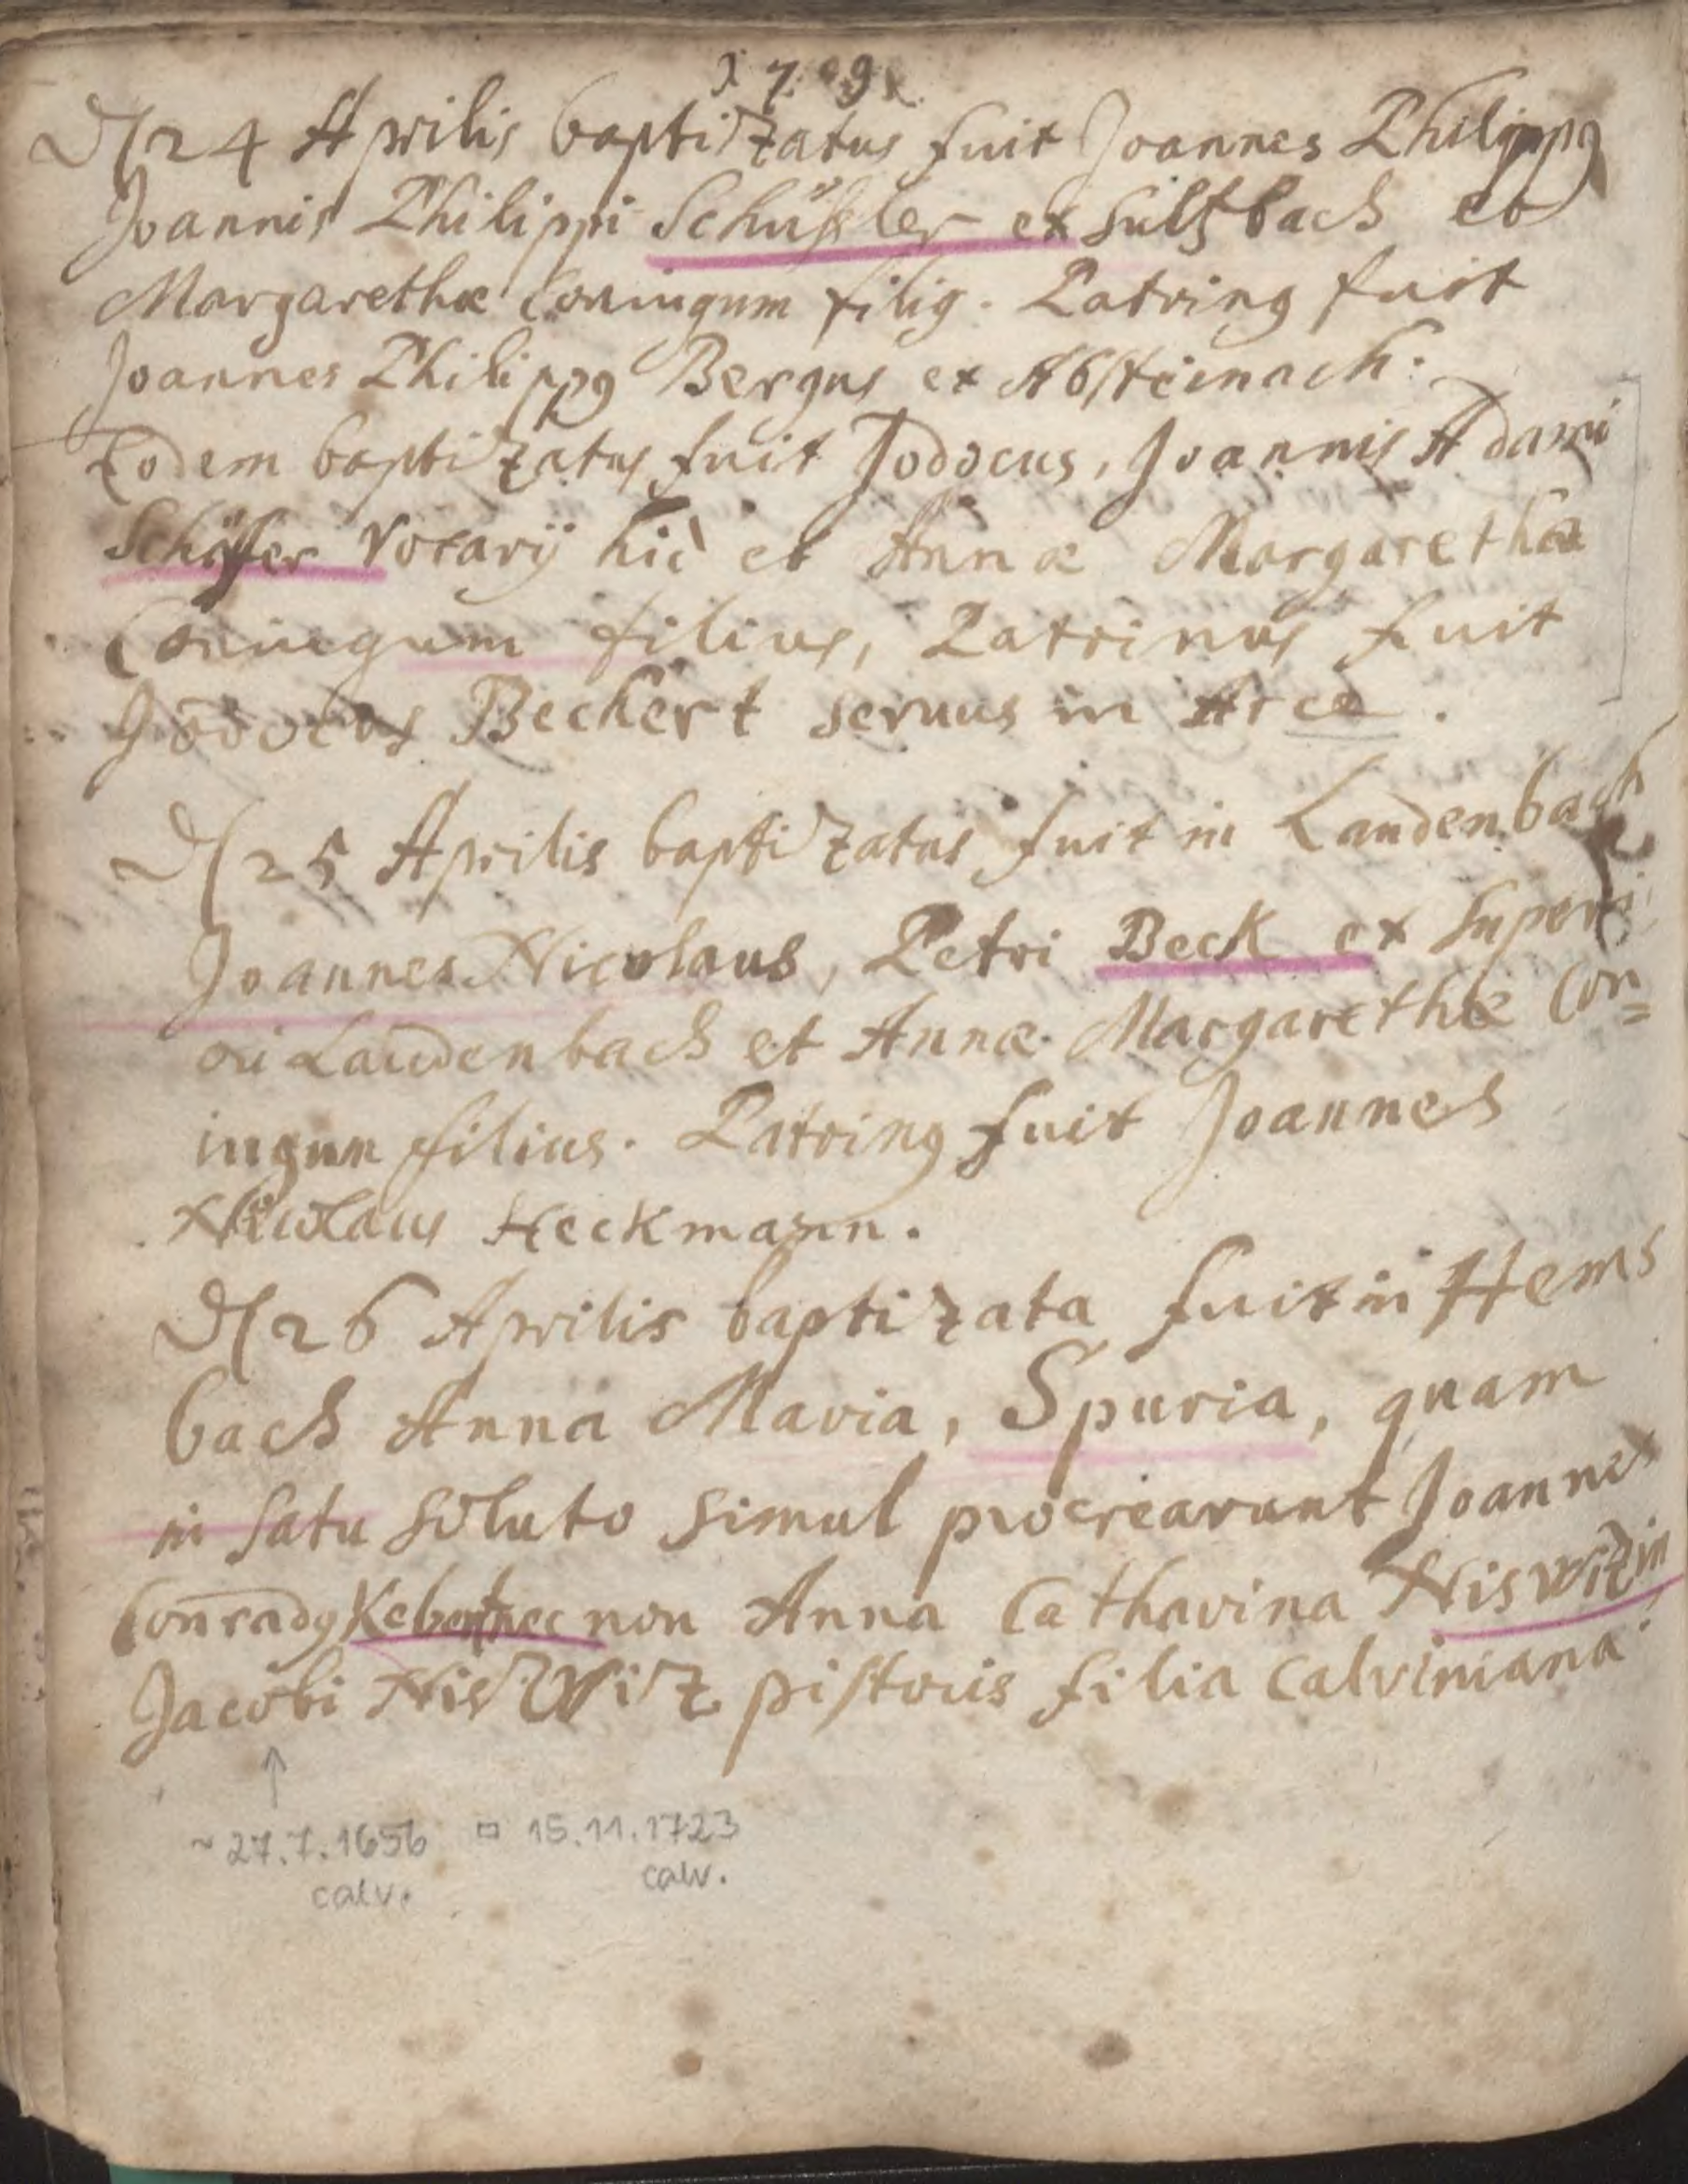 1709
D 24 Aprilis baptizatus fuit Joannes Philippus
Joannis Philippi Schüssler ex Sultzbach et
Margarethæ Coniugum filius. Patrinus fuit
Joannes Philippus Bergus ex Absteinach.
Eodem baptizatus fuit Jodocus, Joannis Adami
Schäffer Vorarÿ hic et Annæ Margarethæ
Coniugum filius, Patrinus fuit
Jodocus Beckert seruus in Arce.
D 25 Aprilis baptizatus fuit in Laudenbach
Joannes Nicolaus, Petri Beck ex Superi
ori Laudenbach et Annæ Margarethæ Con=
iugum filius. Patrinus fuit Joannes
Nicolaus Heckmann.
D 26 Aprilis baptizata fuit in Hems
bach Anna Maria, Spuria, quam
in satu soluto simul procrearunt Joannes
Conradus nec non Anna Catharina Niswizin
Jacobi Niswiz pistoris filia Calviniana.
↑
~ 27.7.1656 □ 15.11.1723
calv. calv.